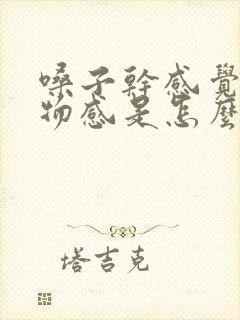 嗓子幹感覺
物感是怎麼
塔吉克